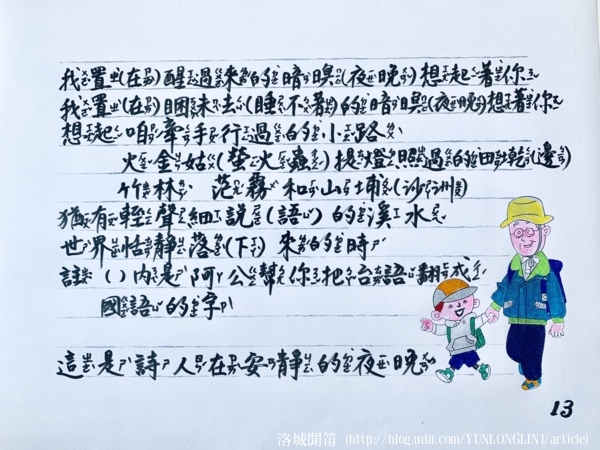 我置(在)醒過來的暗暝(夜晚)想起著你
我置(在)睏未去(睡不著)的暗暝(夜晚)想著你
想起咱牽手行過的小路
火金姑(螢火蟲)提燈照過的田墘(邊)
竹林 茫霧和山埔(沙洲)
猶有輕聲細說(語)的溪水
世界恬靜落(下)來的時
註:()內是阿公幫你把台語翻成
國語的字
這是詩人在安靜的夜晚
13
洛城聞笛 (http://blog.udn.com/YUNLONGLIN1/article)